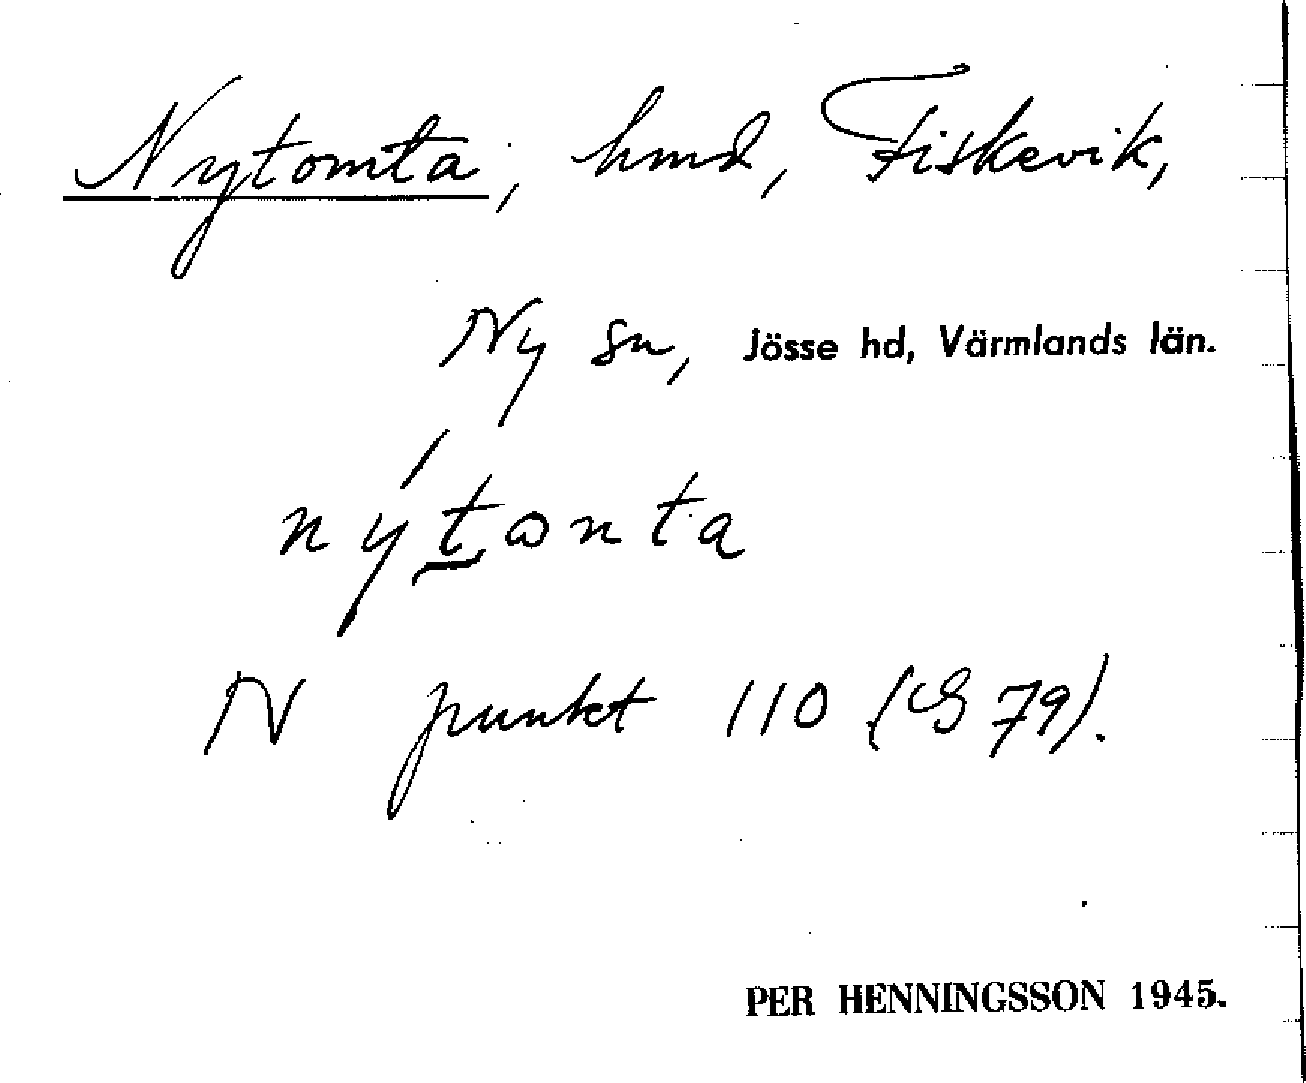 Nytomta, hmd, Fiskevik,
Ny sn, Jösse hd, Värmlands län.
nýtωnta
N punkt 110 (G 79).
PER HENNINGSSON 1945.